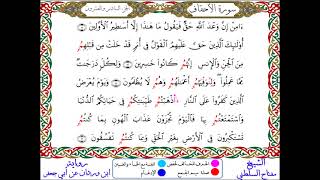 سورة الأحقاف
الجزء السادس والعشرون
ءَامِنْ إِنَّ وَعْدَ اللَّهِ حَقٌّ فَيَقُولُ مَا هَٰذَا إِلَّا أَسَٰطِيرُ الْأَوَّلِينَ
أُوْلَٰئِكَ الَّذِينَ حَقَّ عَلَيْهِمُ الْقَوْلُ فِي أُمَمٍ قَدْ خَلَتْ مِن قَبْلِهِمُ
مِنَ الْجِنِّ وَالْإِنسِ إِنَّهُمُ كَانُوا خَٰسِرِينَ وَلِكُلٍّ دَرَجَٰتٌ
مِمَّا عَمِلُوا وَلِنُوَفِّيَهُمُ أَعْمَٰلَهُمُ وَهُمُ لَا يُظْلَمُونَ وَيَوْمَ يُعْرَضُ
الَّذِينَ كَفَرُوا عَلَى النَّارِ ءَاذْهَبْتُمُ طَيِّبَٰتِكُمُ فِي حَيَاتِكُمُ الدُّنْيَا
وَاسْتَمْتَعْتُمُ بِهَا فَالْيَوْمَ تُجْزَوْنَ عَذَابَ الْهُونِ بِمَا كُنتُمُ
تَسْتَكْبِرُونَ فِي الْأَرْضِ بِغَيْرِ الْحَقِّ وَبِمَا كُنتُمُ تَفْسُقُونَ
الشيخ
مفتاح السلطني
رواية
ابن وردان عن أبي جعفر